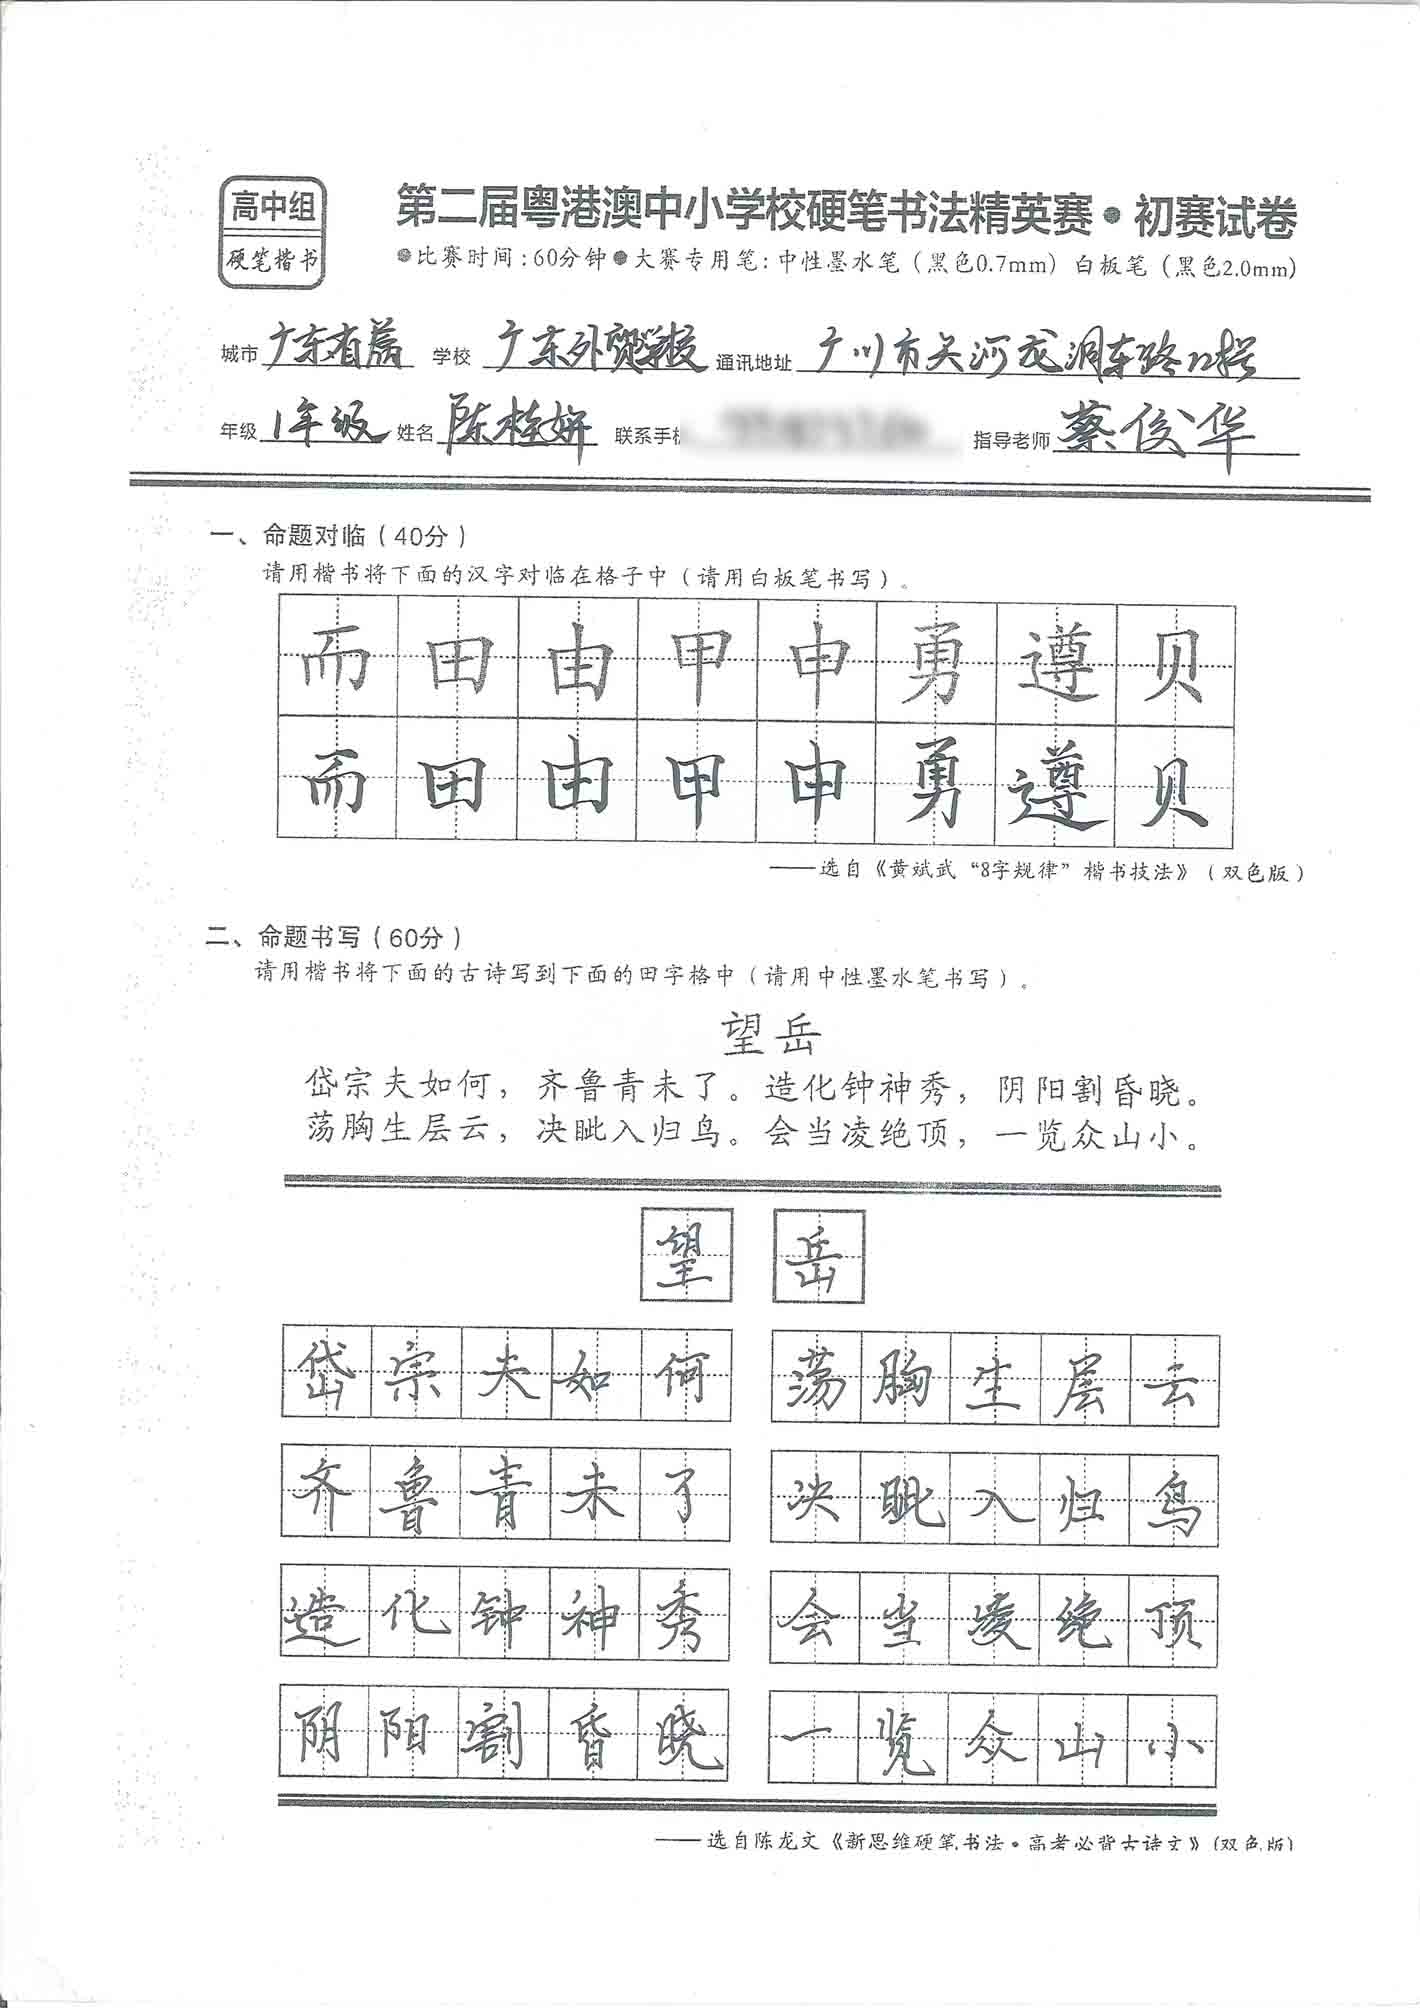 高中组
硬笔楷书
第二届粤港澳中小学校硬笔书法精英赛·初赛试卷
●比赛时间:60分钟●大赛专用笔:中性墨水笔(黑色0.7mm) 白板笔(黑色2.0mm)
城市 广东省 学校 广东外贸学校 通讯地址 广州市天河龙洞东路
年级 1年级 姓名 陈桂妍 联系手机 指导老师 蔡俊华
一、命题对临(40分)
请用楷书将下面的汉字对临在格子中(请用白板笔书写)。
而 田 由 甲 申 勇 遵 贝
而 田 由 甲 申 勇 遵 贝
——选自《黄斌武“8字规律”楷书技法》(双色版)
二、命题书写(60分)
请用楷书将下面的古诗写到下面的田字格中(请用中性墨水笔书写)。
望岳
岱宗夫如何，齐鲁青未了。造化钟神秀，阴阳割昏晓。
荡胸生层云，决眦入归鸟。会当凌绝顶，一览众山小。
望 岳
岱宗夫如何 荡胸生层云
齐鲁青未了 决眦入归鸟
造化钟神秀 会当凌绝顶
阴阳割昏晓 一览众山小
——选自陈龙文《新思维硬笔书法·高考必背古诗文》(双色版)